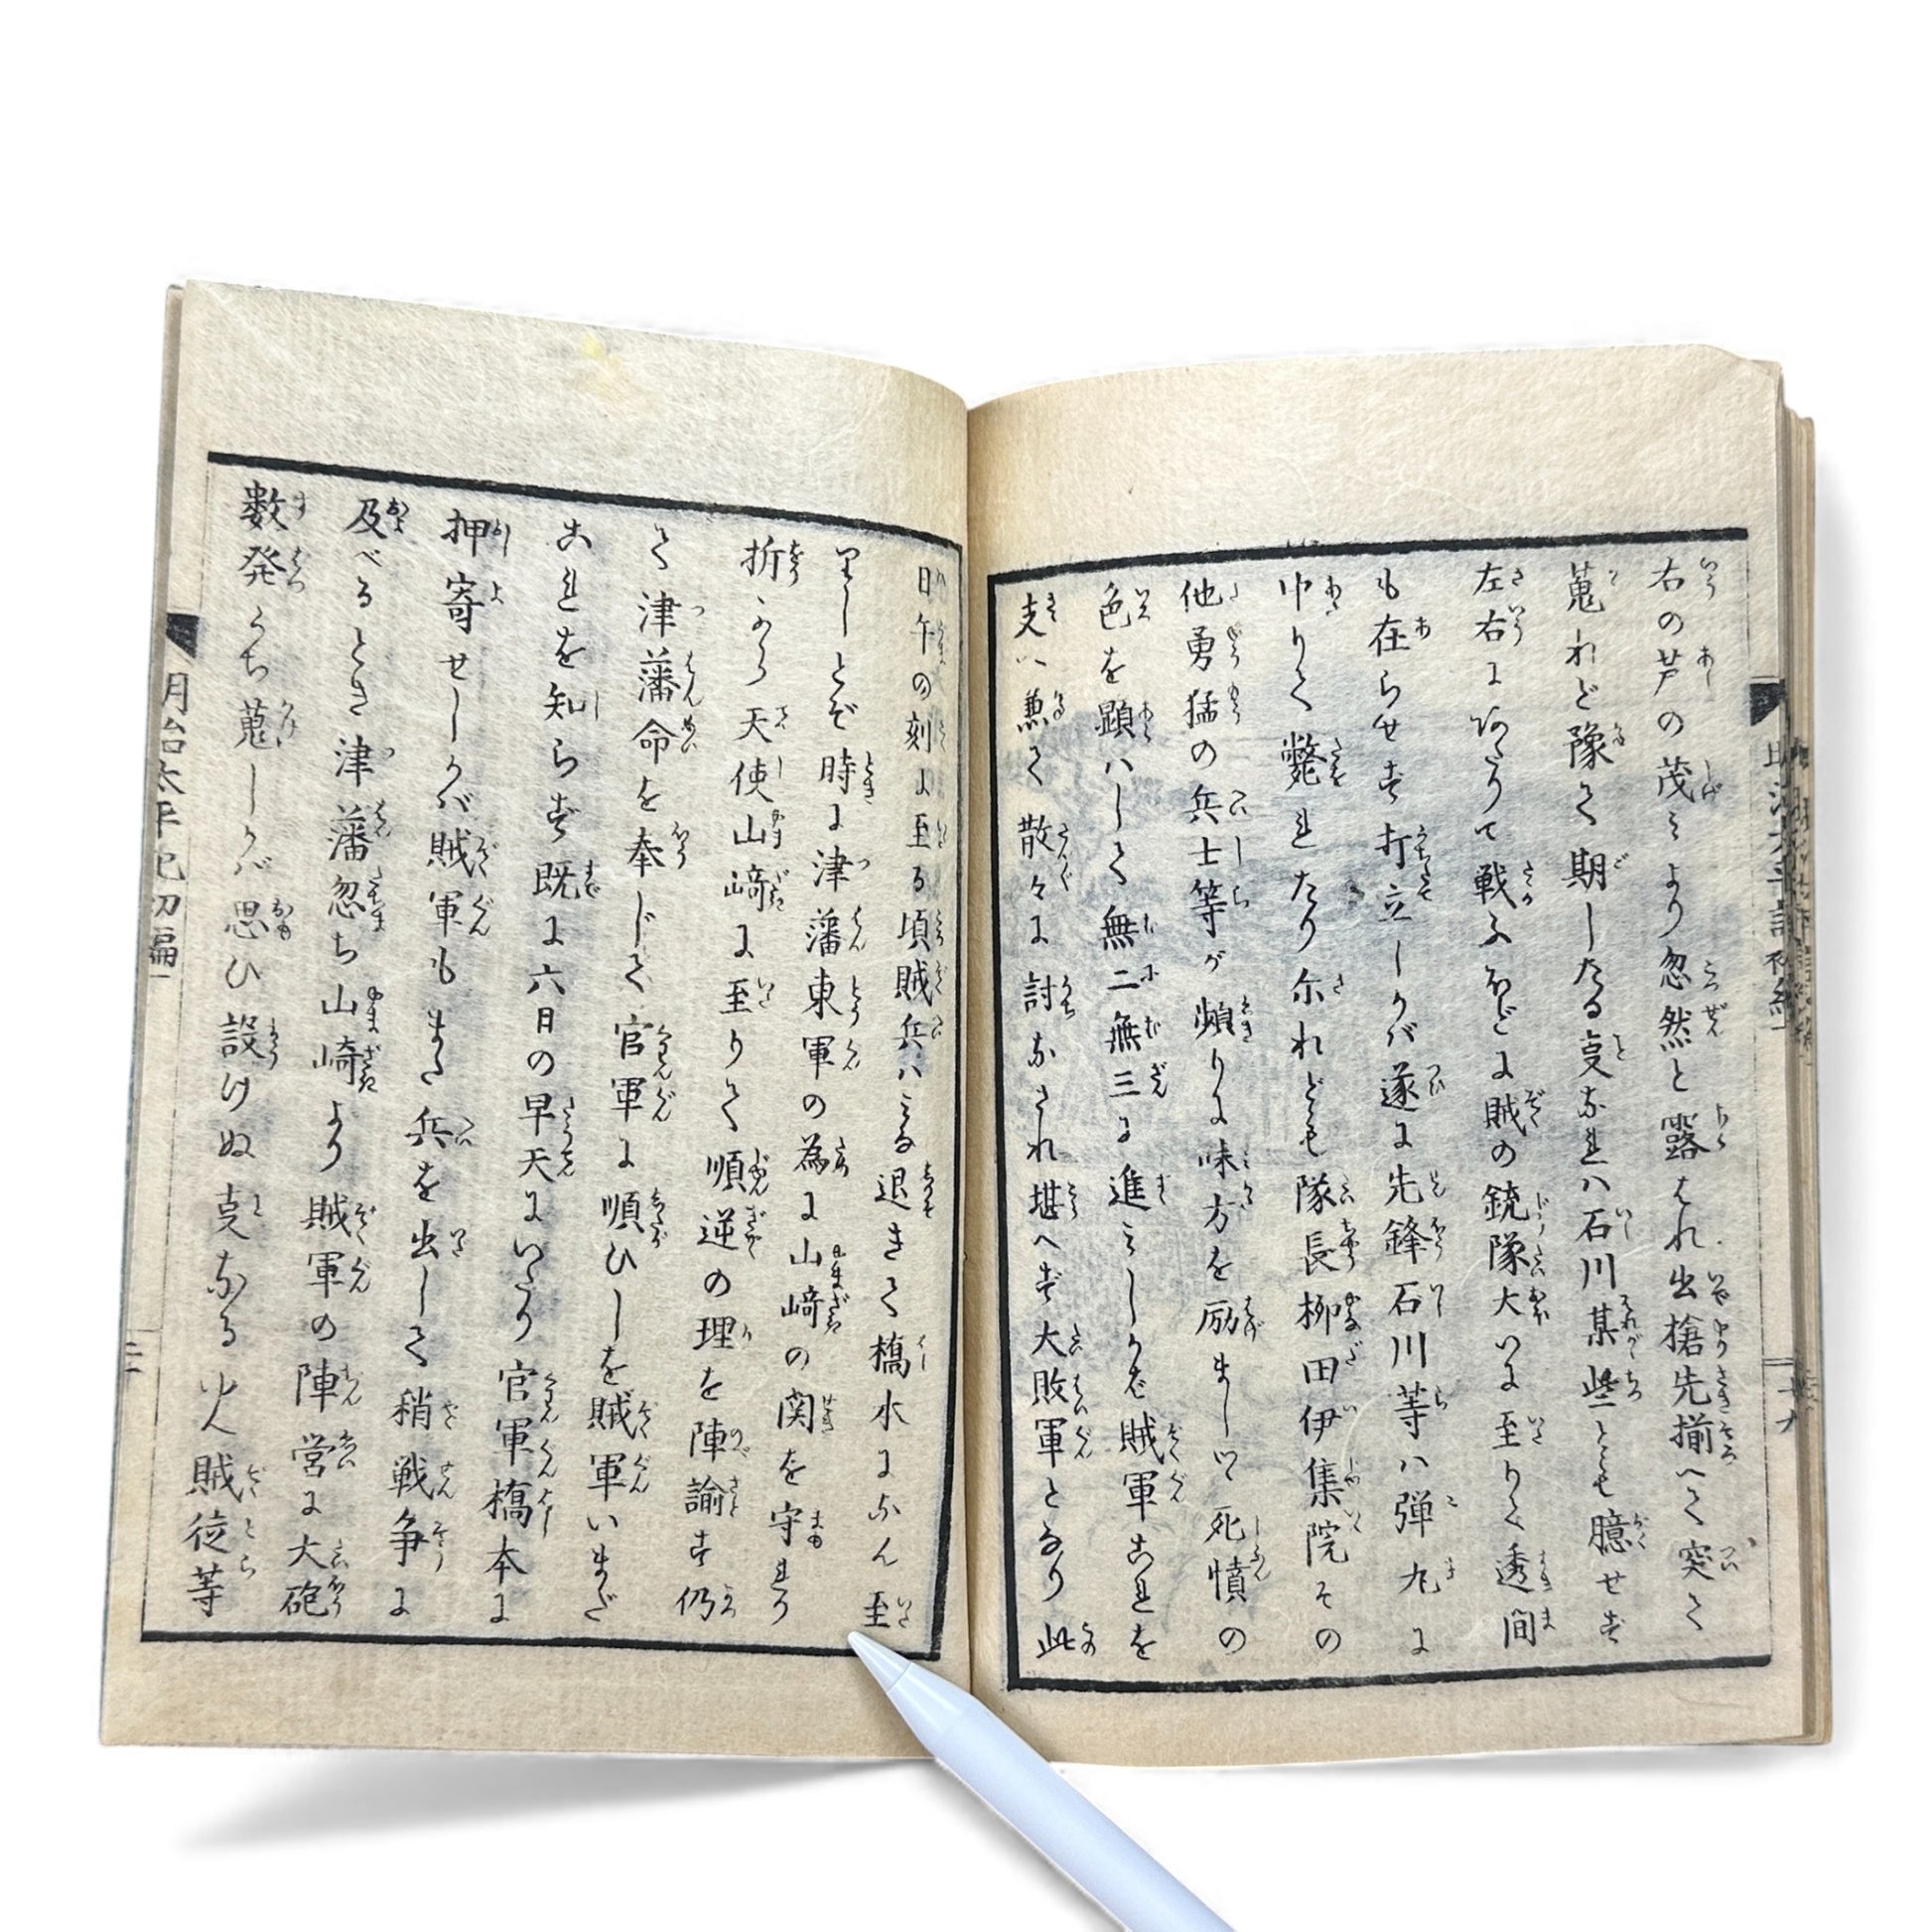 右の芦の茂みより忽然と露はれ出槍先揃へて突て
蒐れど豫て期したる叓なれハ石川某些とも臆せず
左右にわたりて戦ふほどに賊の銃隊大いに至りて透間
も在らせず打立しかバ遂に先鋒石川等ハ弾丸に
中りて斃れたり尓れども隊長柳田伊集院その
他勇猛の兵士等が頻りに味方を励ましつゝ死憤の
色を顕ハして無二無三に進みしかバ賊軍これを
支へ兼て散々に討なされ堪へず大敗軍となり此
日午の刻に至る頃賊兵ハみな退きて橋本になん至
りしとぞ時に津藩東軍の為に山崎の関を守れり
折から天使山崎に至りて順逆の理を陣諭す仍
て津藩命を奉じて官軍に順ひしを賊軍いまだ
これを知らず既に六日の早天にいたり官軍橋本に
押寄せしかバ賊軍もまた兵を出して稍戦争に
及べるとき津藩忽ち山崎より賊軍の陣営に大砲
数発うち蒐しかバ思ひ設けぬ叓なる火人賊徒等
明治太平記初編